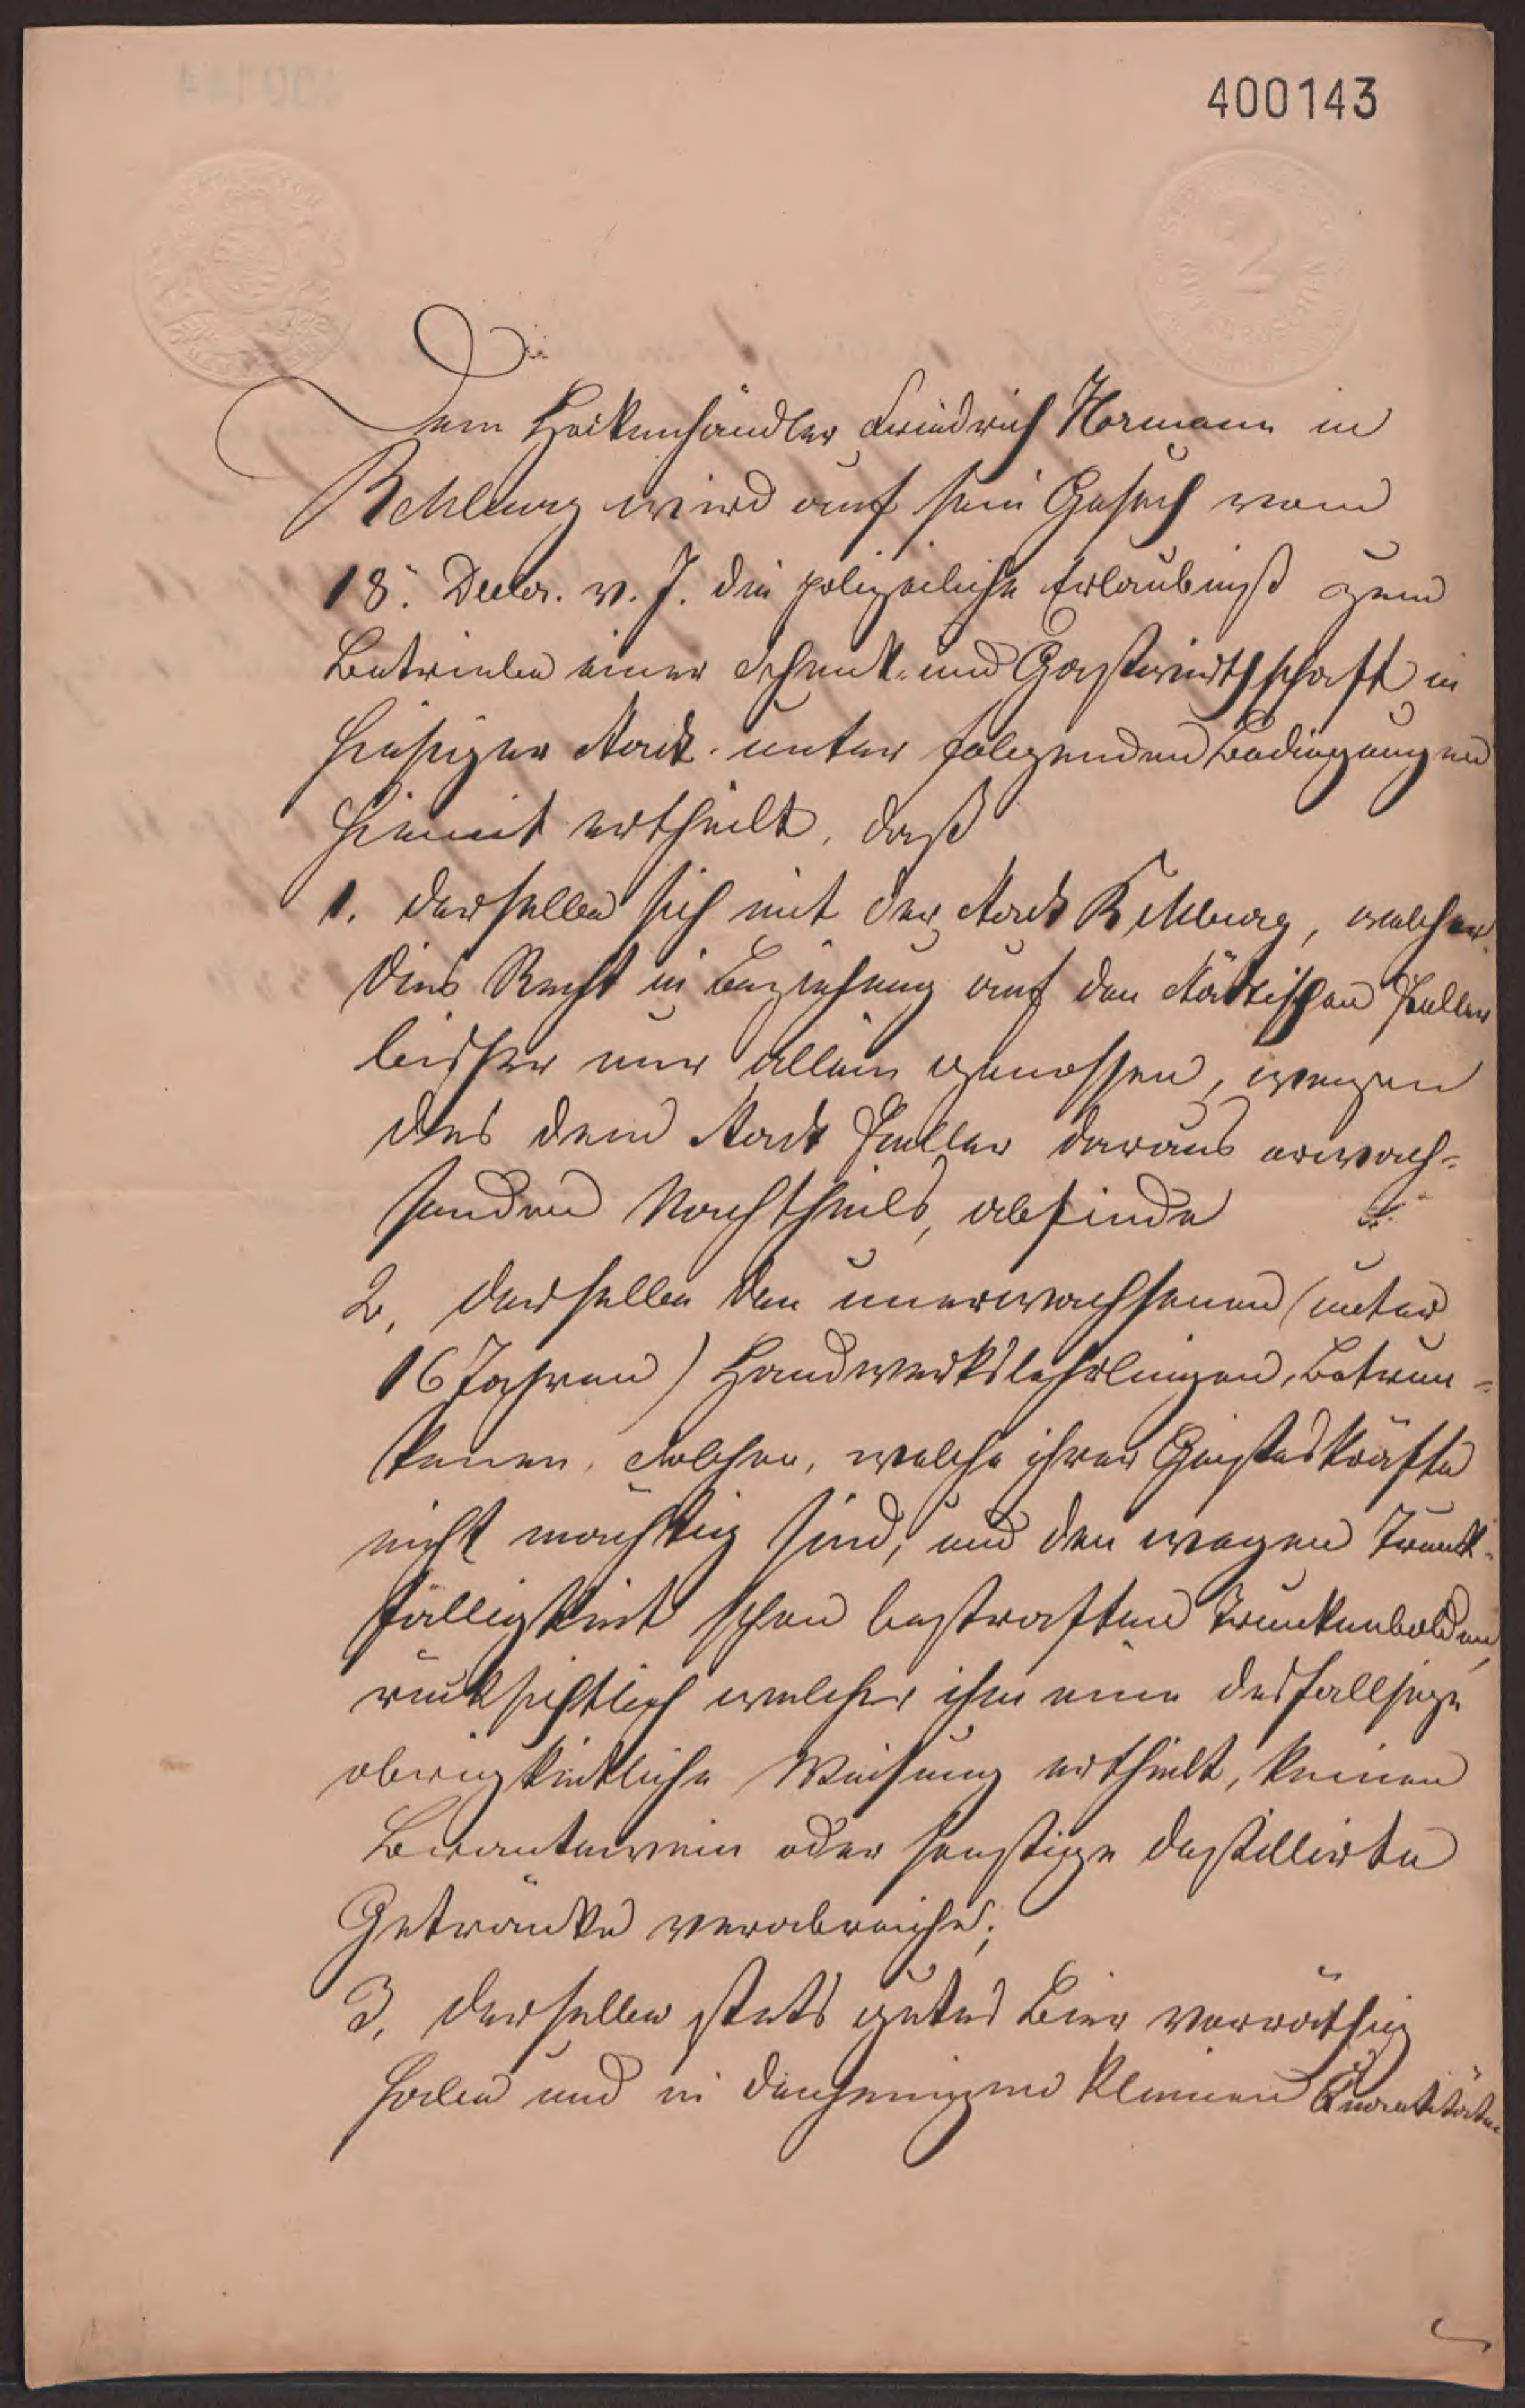 400143
2
Dem Hockenhändler Friedrich Hormann in
Rehburg wird auf sein Gesuch vom
18. Decbr. v. J. die polizeiliche Erlaubniß zum
Betriebe einer Schenk- und Gastwirthschaft in
hiesiger Stadt unter folgenden Bedingungen
hiemit ertheilt, daß
1. derselbe sich mit der Stadt Rehburg, welcher
dies Recht in Beziehung auf den städtischen Keller
bisher nur allein genossen, wegen
des dem Stadt Keller daraus erwach-
senden Nachtheils, abfinde
2, derselbe den unerwachsenen (unter
16 Jahren) Handwerkslehrlingen, Betrun-
kenen, Solchen, welche ihrer Geisteskräfte
nicht mächtig sind, und den wegen Trunk-
fälligkeit schon bestraften Trunkenbolden,
rücksichtlich welcher ihm eine desfallsige
obrigkeitliche Weisung ertheilt, keinen
Branntewein oder sonstige destillirte
Getränke verabreiche;
3, derselbe stets gutes Bier vorräthig
habe und in denjenigen kleinen Quantitäten